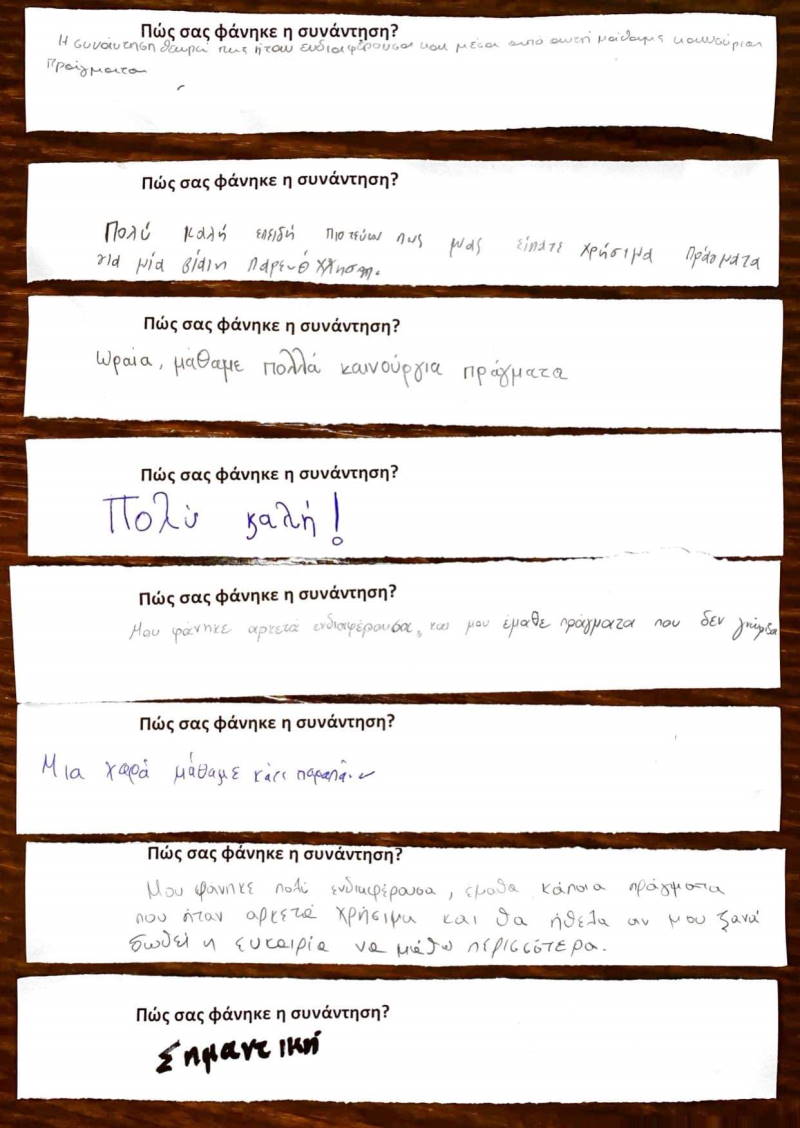 Πώς σας φάνηκε η συνάντηση?
Η συνάντηση θεωρώ πως ήταν ενδιαφέρουσα και μέσα από αυτή μάθαμε καινούρια
πράγματα
Πώς σας φάνηκε η συνάντηση?
Πολύ καλή επειδή πιστεύω πως μας είπατε χρήσιμα πράγματα
για μία βίαιη παρενόχληση.
Πώς σας φάνηκε η συνάντηση?
Ωραία, μάθαμε πολλά καινούργια πράγματα
Πώς σας φάνηκε η συνάντηση?
Πολύ καλή!
Πώς σας φάνηκε η συνάντηση?
Μου φάνηκε αρκετά ενδιαφέρουσα, και μου έμαθε πράγματα που δεν γνώριζα
Πώς σας φάνηκε η συνάντηση?
Μια χαρά μάθαμε κάτι
Πώς σας φάνηκε η συνάντηση?
Μου φάνηκε πολύ ενδιαφέρουσα, έμαθα κάποια πράγματα
που ήταν αρκετά χρήσιμα και θα ήθελα αν μου ξανά
δωθεί η ευκαιρία να μάθω περισσότερα.
Πώς σας φάνηκε η συνάντηση?
Σημαντική